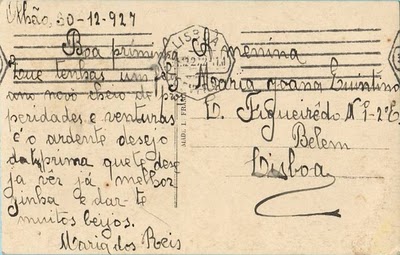 Olhão, 30-12-927
Boa priminha
Que tenhas um feliz
ano novo cheio de pros
peridades e venturas
é o ardente desejo
da prima que te dese
ja vêr já melhor
zinha e dar-te
muitos beijos.
Maria dos Reis
LISBOA
A menina
Maria Joana Quintino
D. Figueirêdo Nº 1-2º E.
Belem
Lisboa